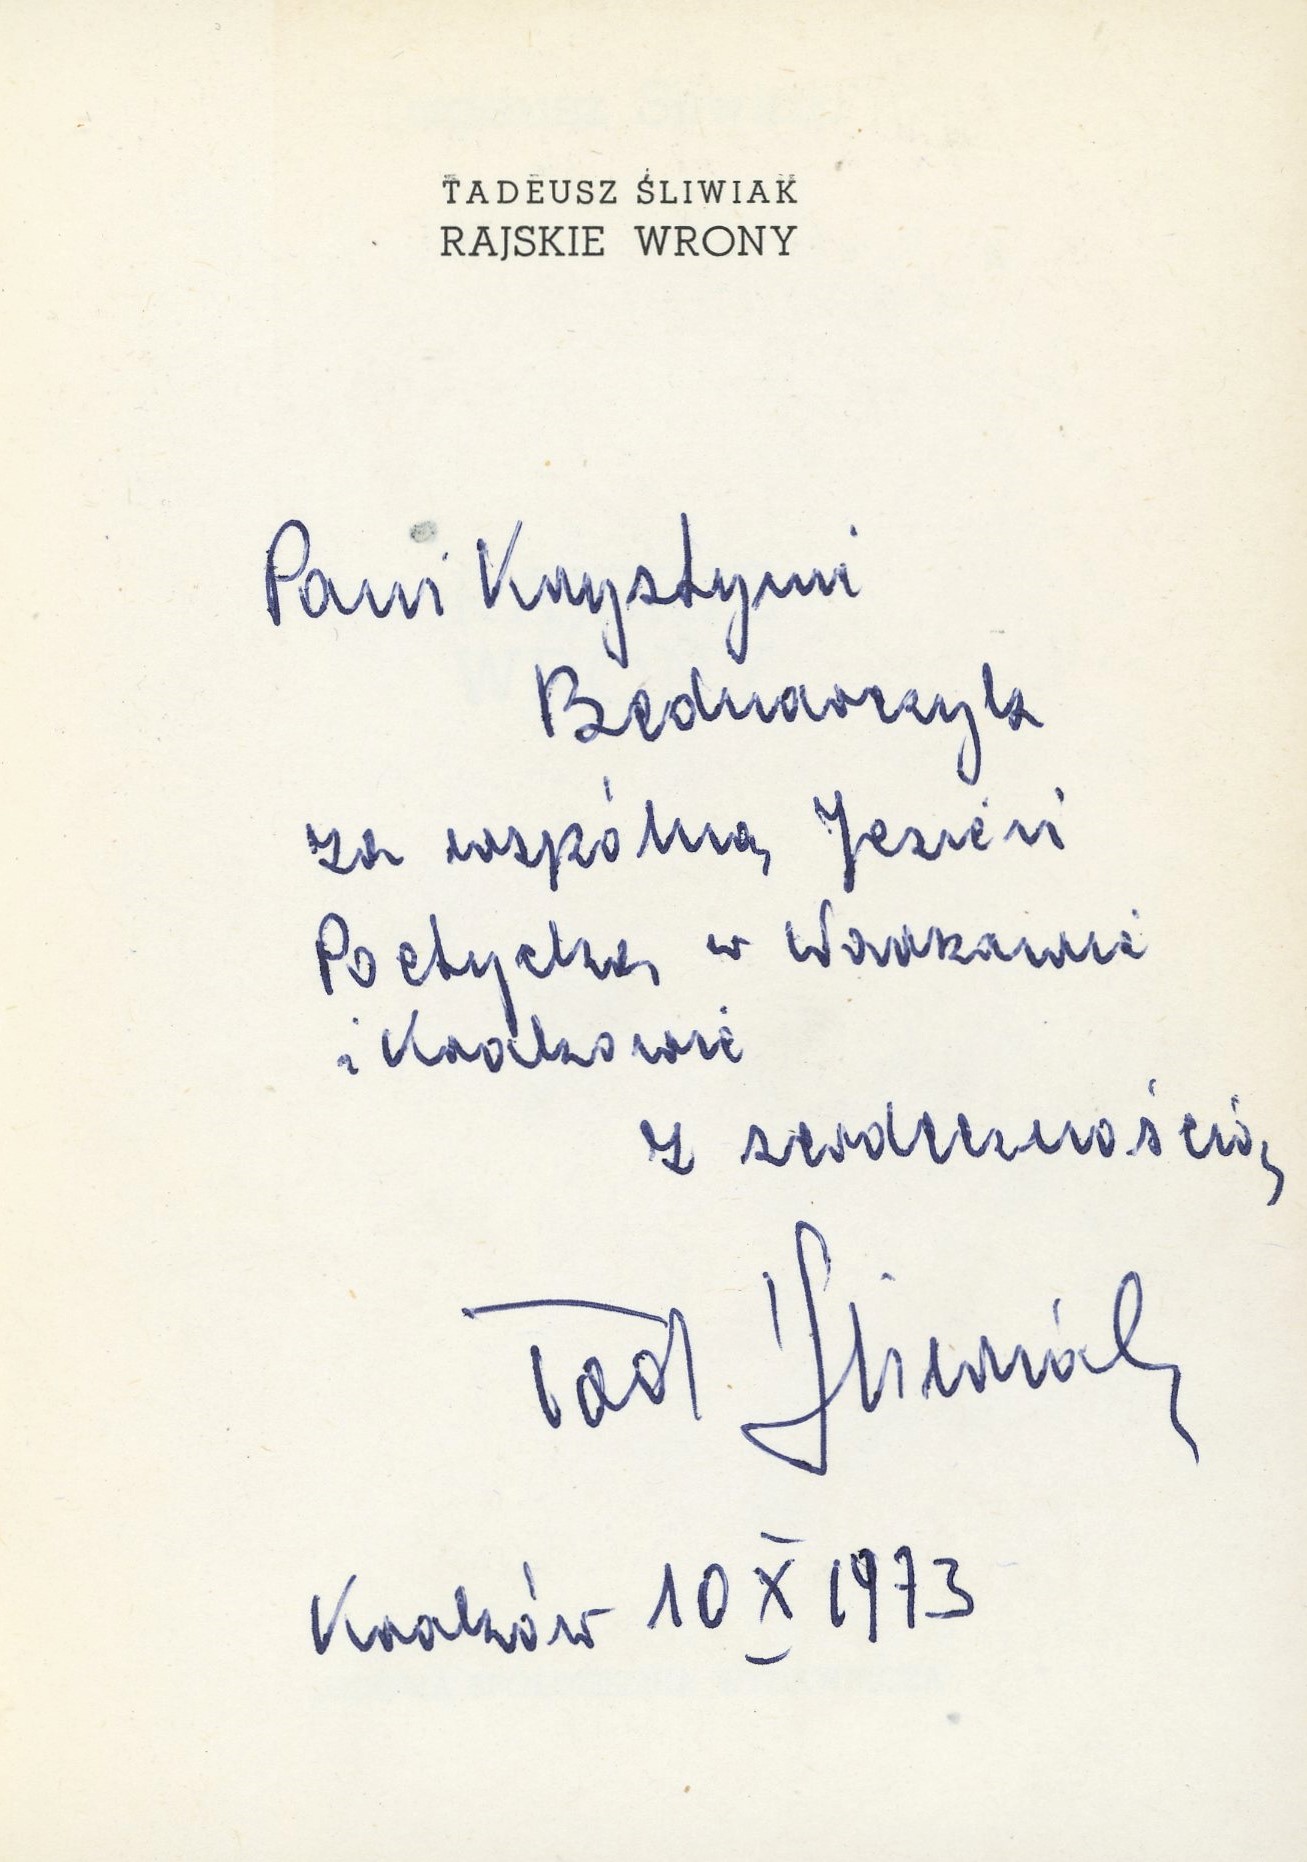 TADEUSZ ŚLIWIAK
RAJSKIE WRONY
Pani Krystyni
Bednarczyk
za wspólną Jesień
Poetycką w Warszawie
i Krakowie
z serdecznością
Tad Śliwiak
Kraków 10 X 1973